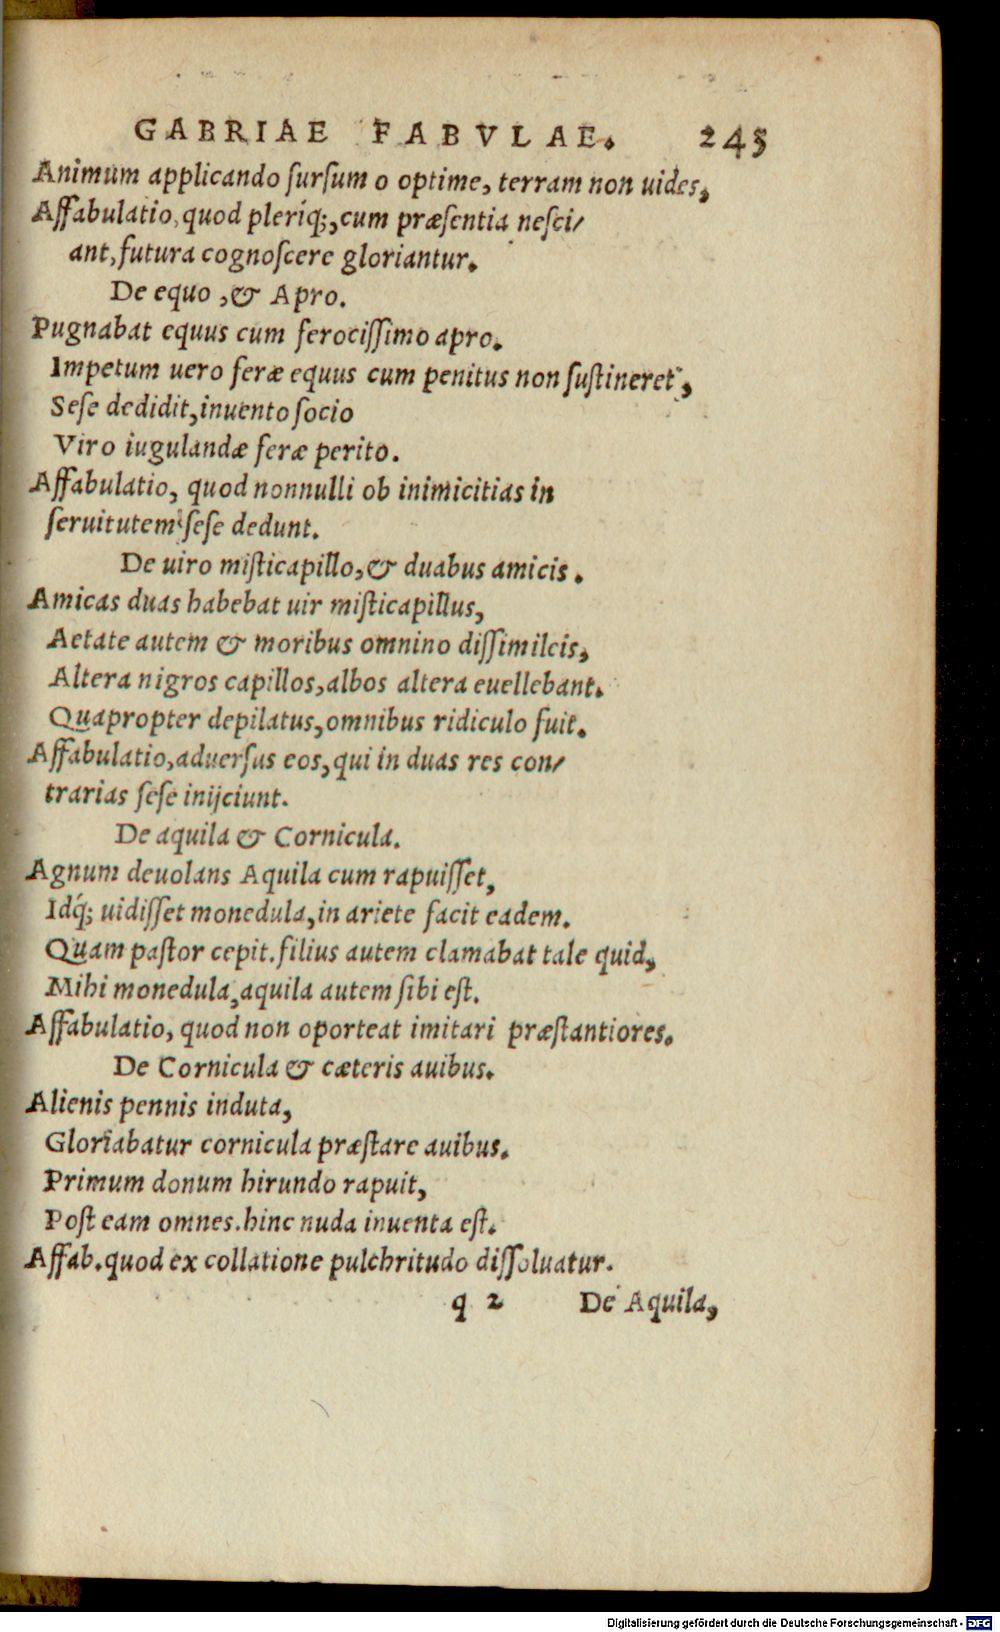 GABRIAE FABVLAE. 243
Animum applicando ſurſum o optime, terram non uides,
Aſſabulatio, quod pleríq;, cum præſentia neſci/
ant, futura cognoſcere gloriantur.
De equo, & Apro.
Pugnabat equus cum ferociſſimo apro.
Impetum uero feræ equus cum penitus non ſuſtineret,
Seſe dedidit, inuento ſocio
Viro iugulandæ feræ perito.
Affabulatio, quod nonnulli ob inimicitias in
ſeruitutem ſeſe dedunt.
De uiro miſticapillo, & duabus amicis.
Amicas duas habebat uir miſticapillus,
Aetate autem & moribus omnino diſſimileis,
Altera nigros capillos, albos altera euellebant.
Quapropter depilatus, omnibus ridiculo fuit.
Affabulatio, aduerſus eos, qui in duas res con/
trarias ſeſe inijciunt.
De aquila & Cornicula.
Agnum deuolans Aquila cum rapuiſſet,
Idq́; uidiſſet monedula, in ariete facit eadem.
Quam paſtor cepit. filius autem clamabat tale quid,
Mihi monedula, aquila autem ſibi eſt.
Affabulatio, quod non oporteat imitari præſtantiores.
De Cornicula & cæteris auibus.
Alienis pennis induta,
Gloriabatur cornicula præſtare auibus.
Primum donum hirundo rapuit,
Poſt eam omnes. hinc nuda inuenta eſt.
Affab. quod ex collatione pulchritudo diſſoluatur.
q 2 De Aquila,
Digitalisierung gefördert durch die Deutsche Forschungsgemeinschaft - DFG